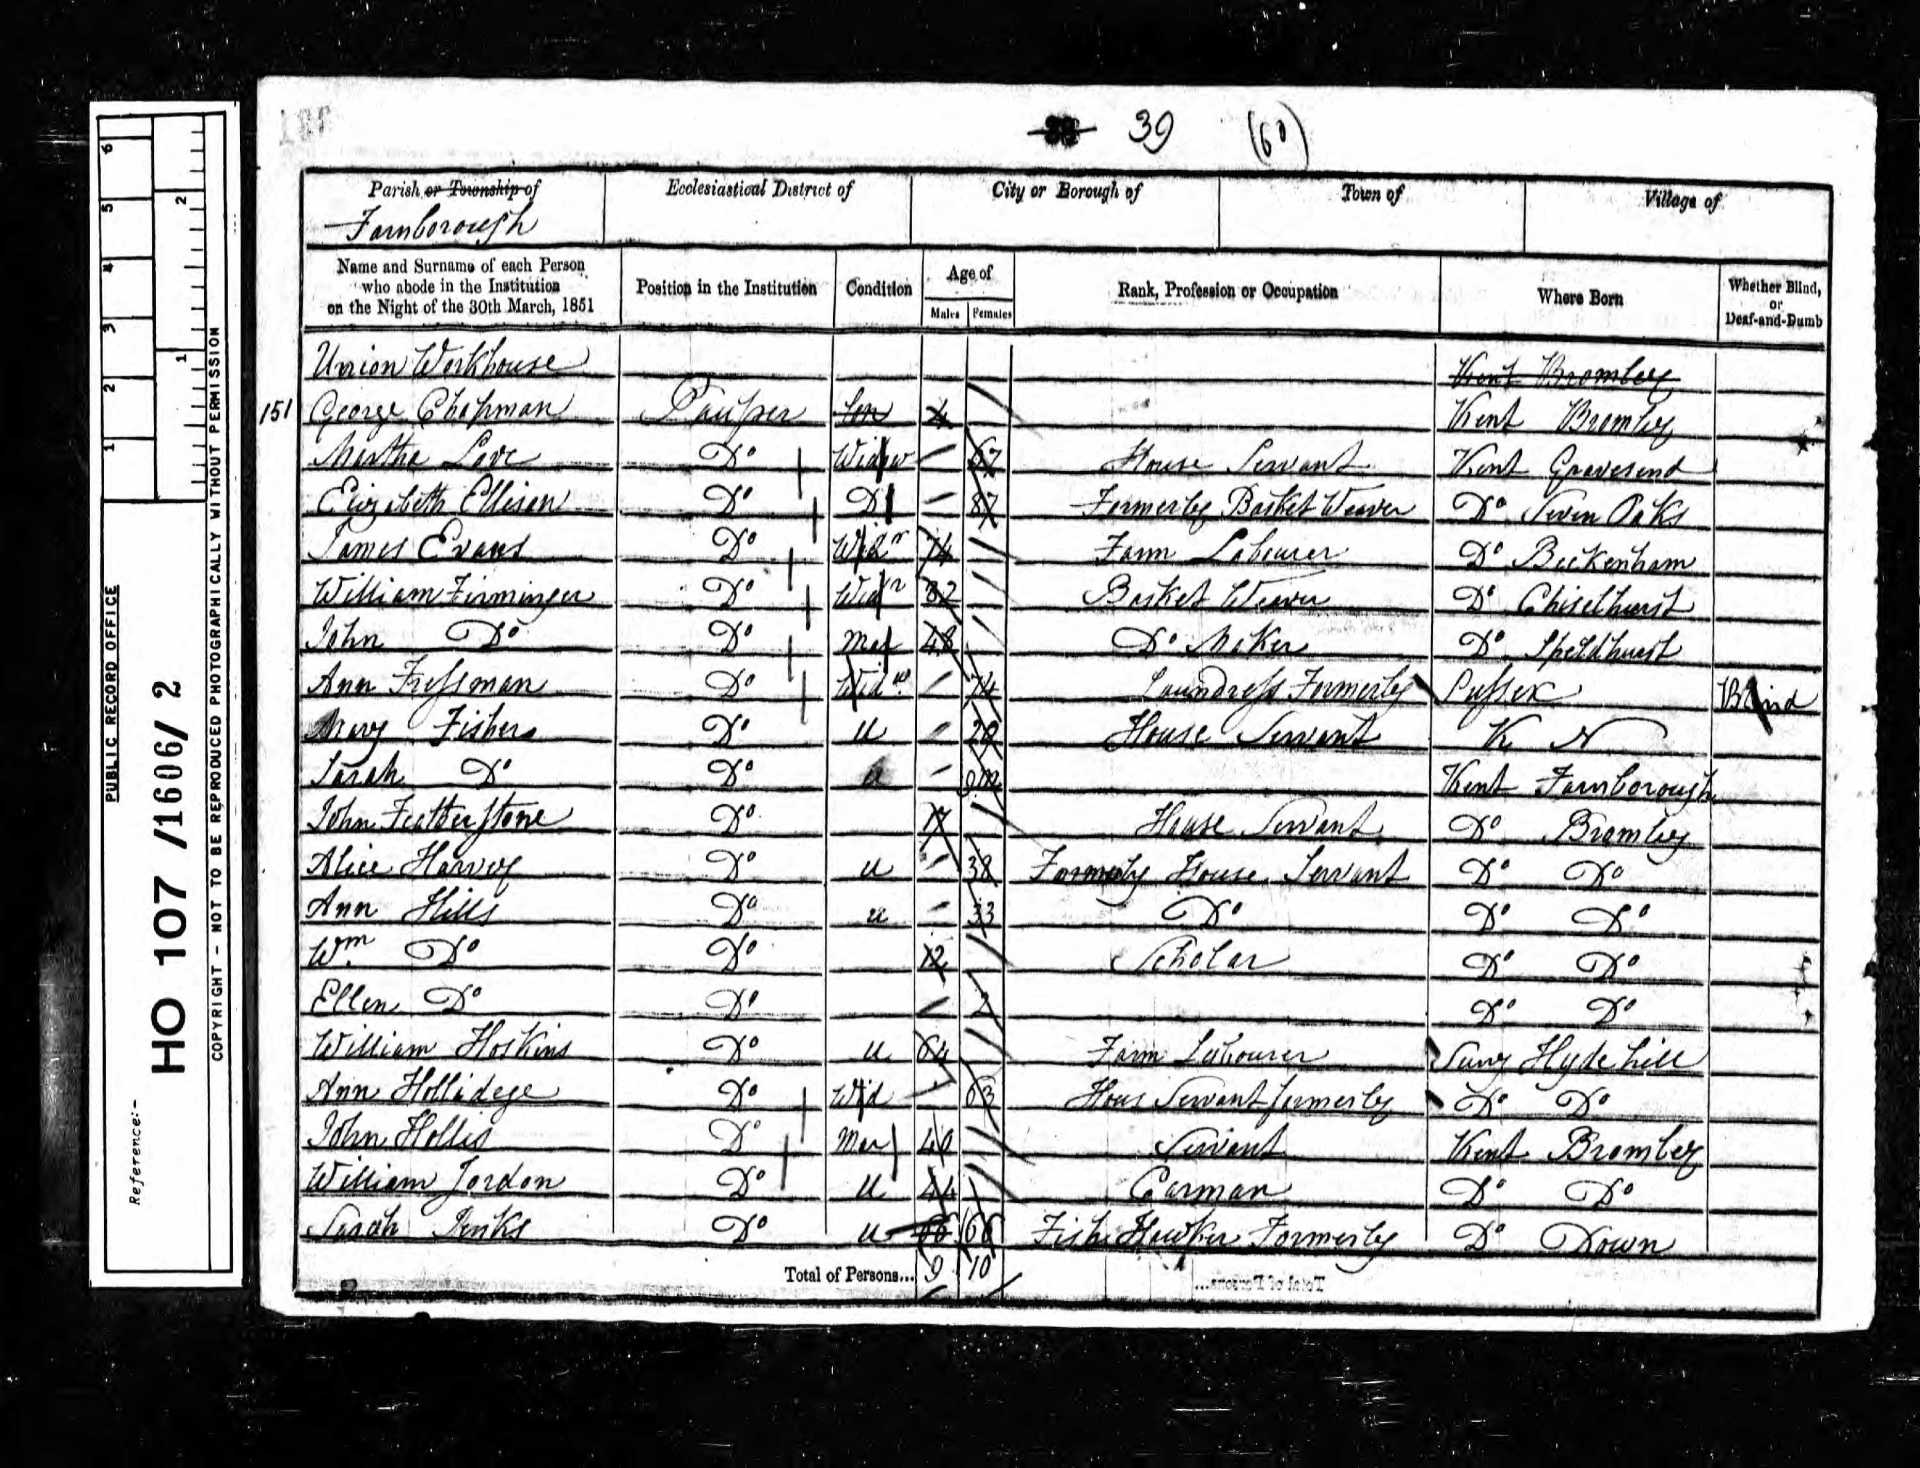 39 (60)
Parish or Township of Ecclesiastical District of City or Borough of Town of Village of
Farnborough
Name and Surname of each Person who abode in the Institution on the Night of the 30th March, 1851 Position in the Institution Condition Age of Males Females Rank, Profession or Occupation Where Born Whether Blind, or Deaf-and-Dumb
Union Workhouse Kent Bromley
151 George Chapman Pauper 4 Kent Bromley
Martha Love Do Widow 67 House Servant Kent Gravesend
Elizabeth Ellison Do Do 87 Formerly Basket Weaver Do Seven Oaks
James Evans Do Widr 74 Farm Labourer Do Beckenham
William Firminger Do Widr 82 Basket Weaver Do Chiselhurst
John Do Do Mar 48 Do Maker Do Speldhurst
Ann Fressman Do Widw 74 Laundress Formerly Sussex Blind
Mary Fisher Do U 20 House Servant N K
Sarah Do Do U 9m Kent Farnborough
John Featherstone Do 17 House Servant Do Bromley
Alice Harvey Do U 38 Formerly House Servant Do Do
Ann Hills Do U 33 Do Do Do
Wm Do Do 12 Scholar Do Do
Ellen Do Do 2 Do Do
William Hoskins Do U 64 Farm Labourer Surry Hyde hill
Ann Hollidge Do Wid 63 Hous Servant formerly Do Do
John Hollis Do Mar 40 Servant Kent Bromley
William Jordon Do U 44 Carman Do Do
Sarah Jenks Do U 66 66 Fish Hawker Formerly Do Down
Total of Persons... 9 10
PUBLIC RECORD OFFICE
Reference:-
HO 107 /1606/ 2
COPYRIGHT - NOT TO BE REPRODUCED PHOTOGRAPHICALLY WITHOUT PERMISSION
1 2 3 4 5 6
1 2